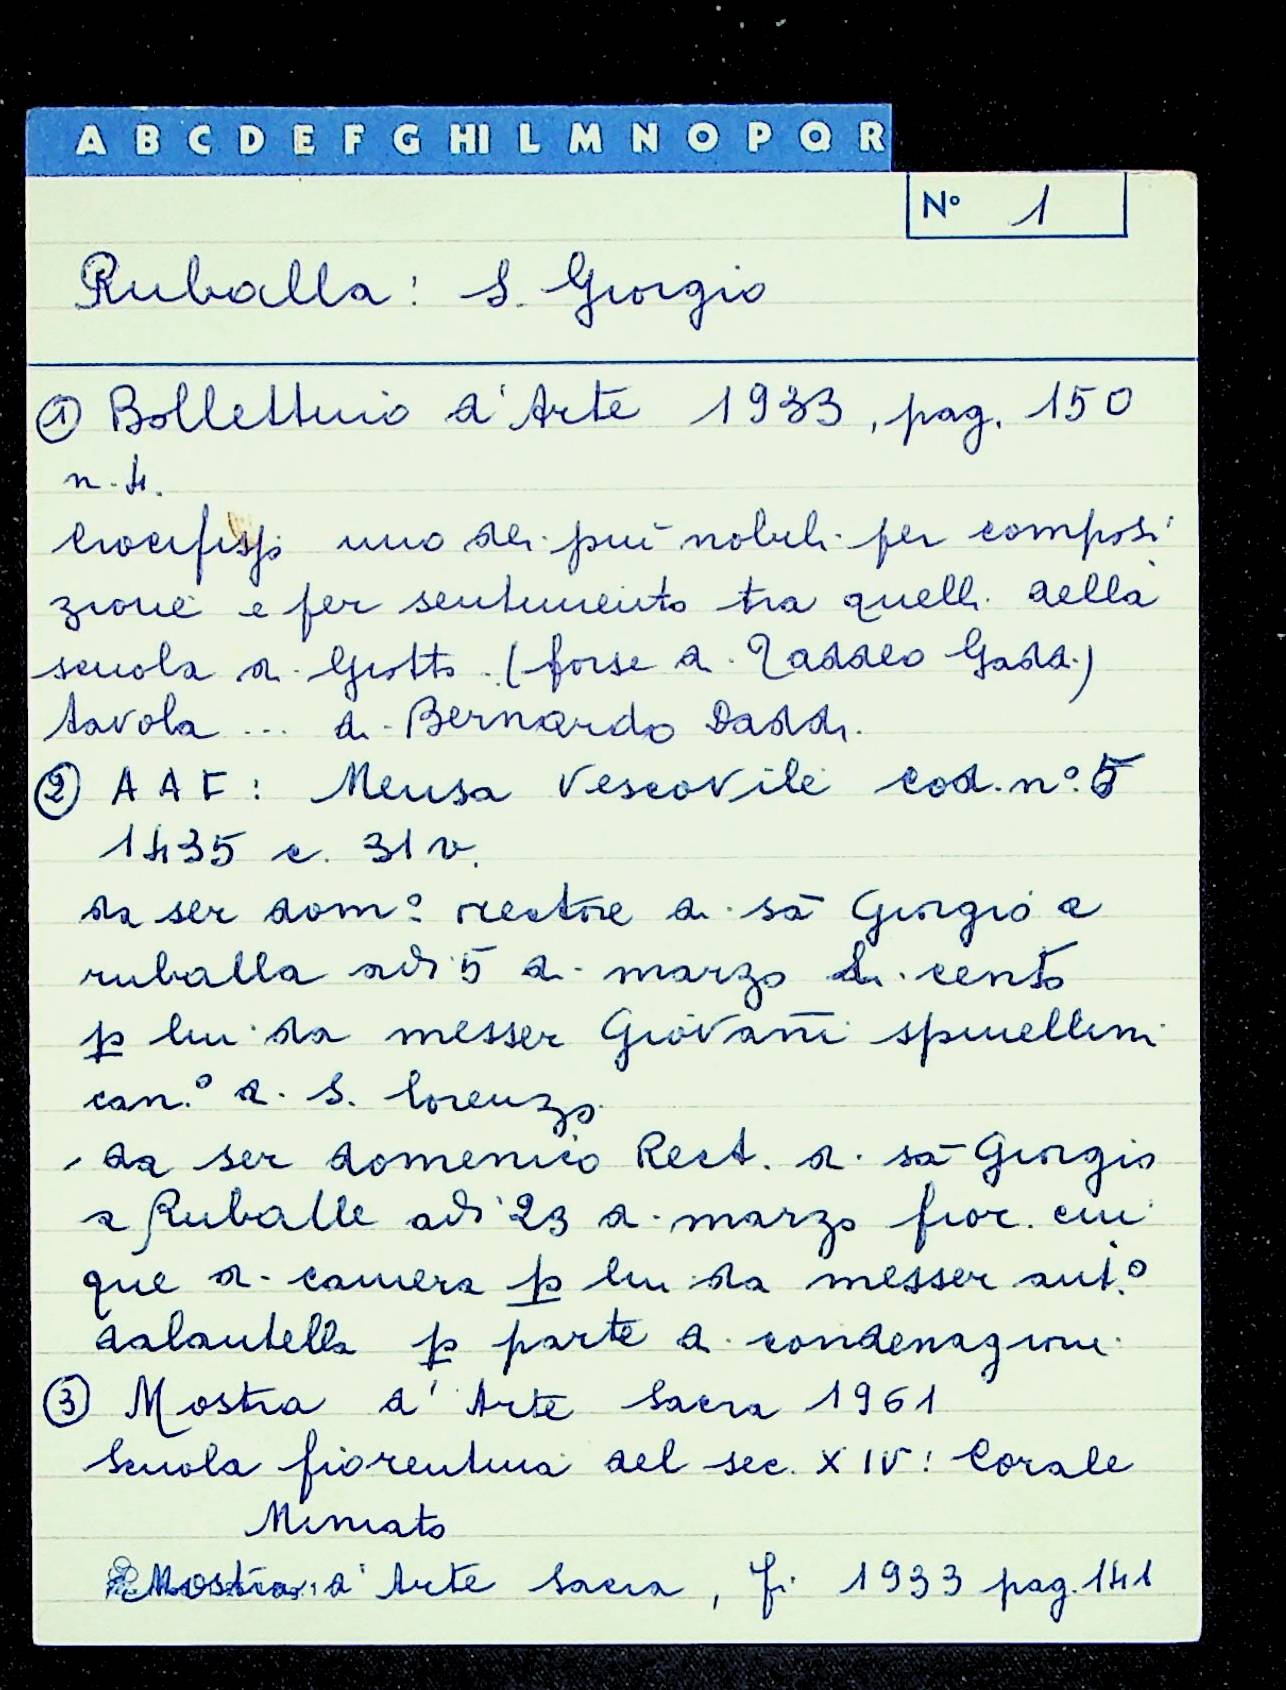 A B C D E F G HI L M N O P Q R
N° 1
Ruballa: S. Giorgio
① Bollettino d'Arte 1933, pag. 150
n. 4.
Crocifisso uno dei più nobili per composi
zione e per sentimento tra quelli della
scuola di Giotto. (forse di Taddeo Gaddi)
tavola ... di Bernardo Daddi.
② AAF: Mensa Vescovile cod. n° 5
1435 c. 31 v.
da ser dom° rectore di sā Giorgio a
ruballa adi 5 di marzo di. cento
p lui da messer Giovāni spinellini
can.° di S. Lorenzo.
, da ser domenico Rect. di sā Giorgio
a Ruballe adi 23 di marzo fior. cin
que di camera p lui da messer ant.°
dalantella p parte di condenagioni
③ Mostra d'Arte Sacra 1961
Scuola fiorentina del sec. XIV: Corale
Miniato
Mostra d'Arte Sacra, Fi 1933 pag. 141